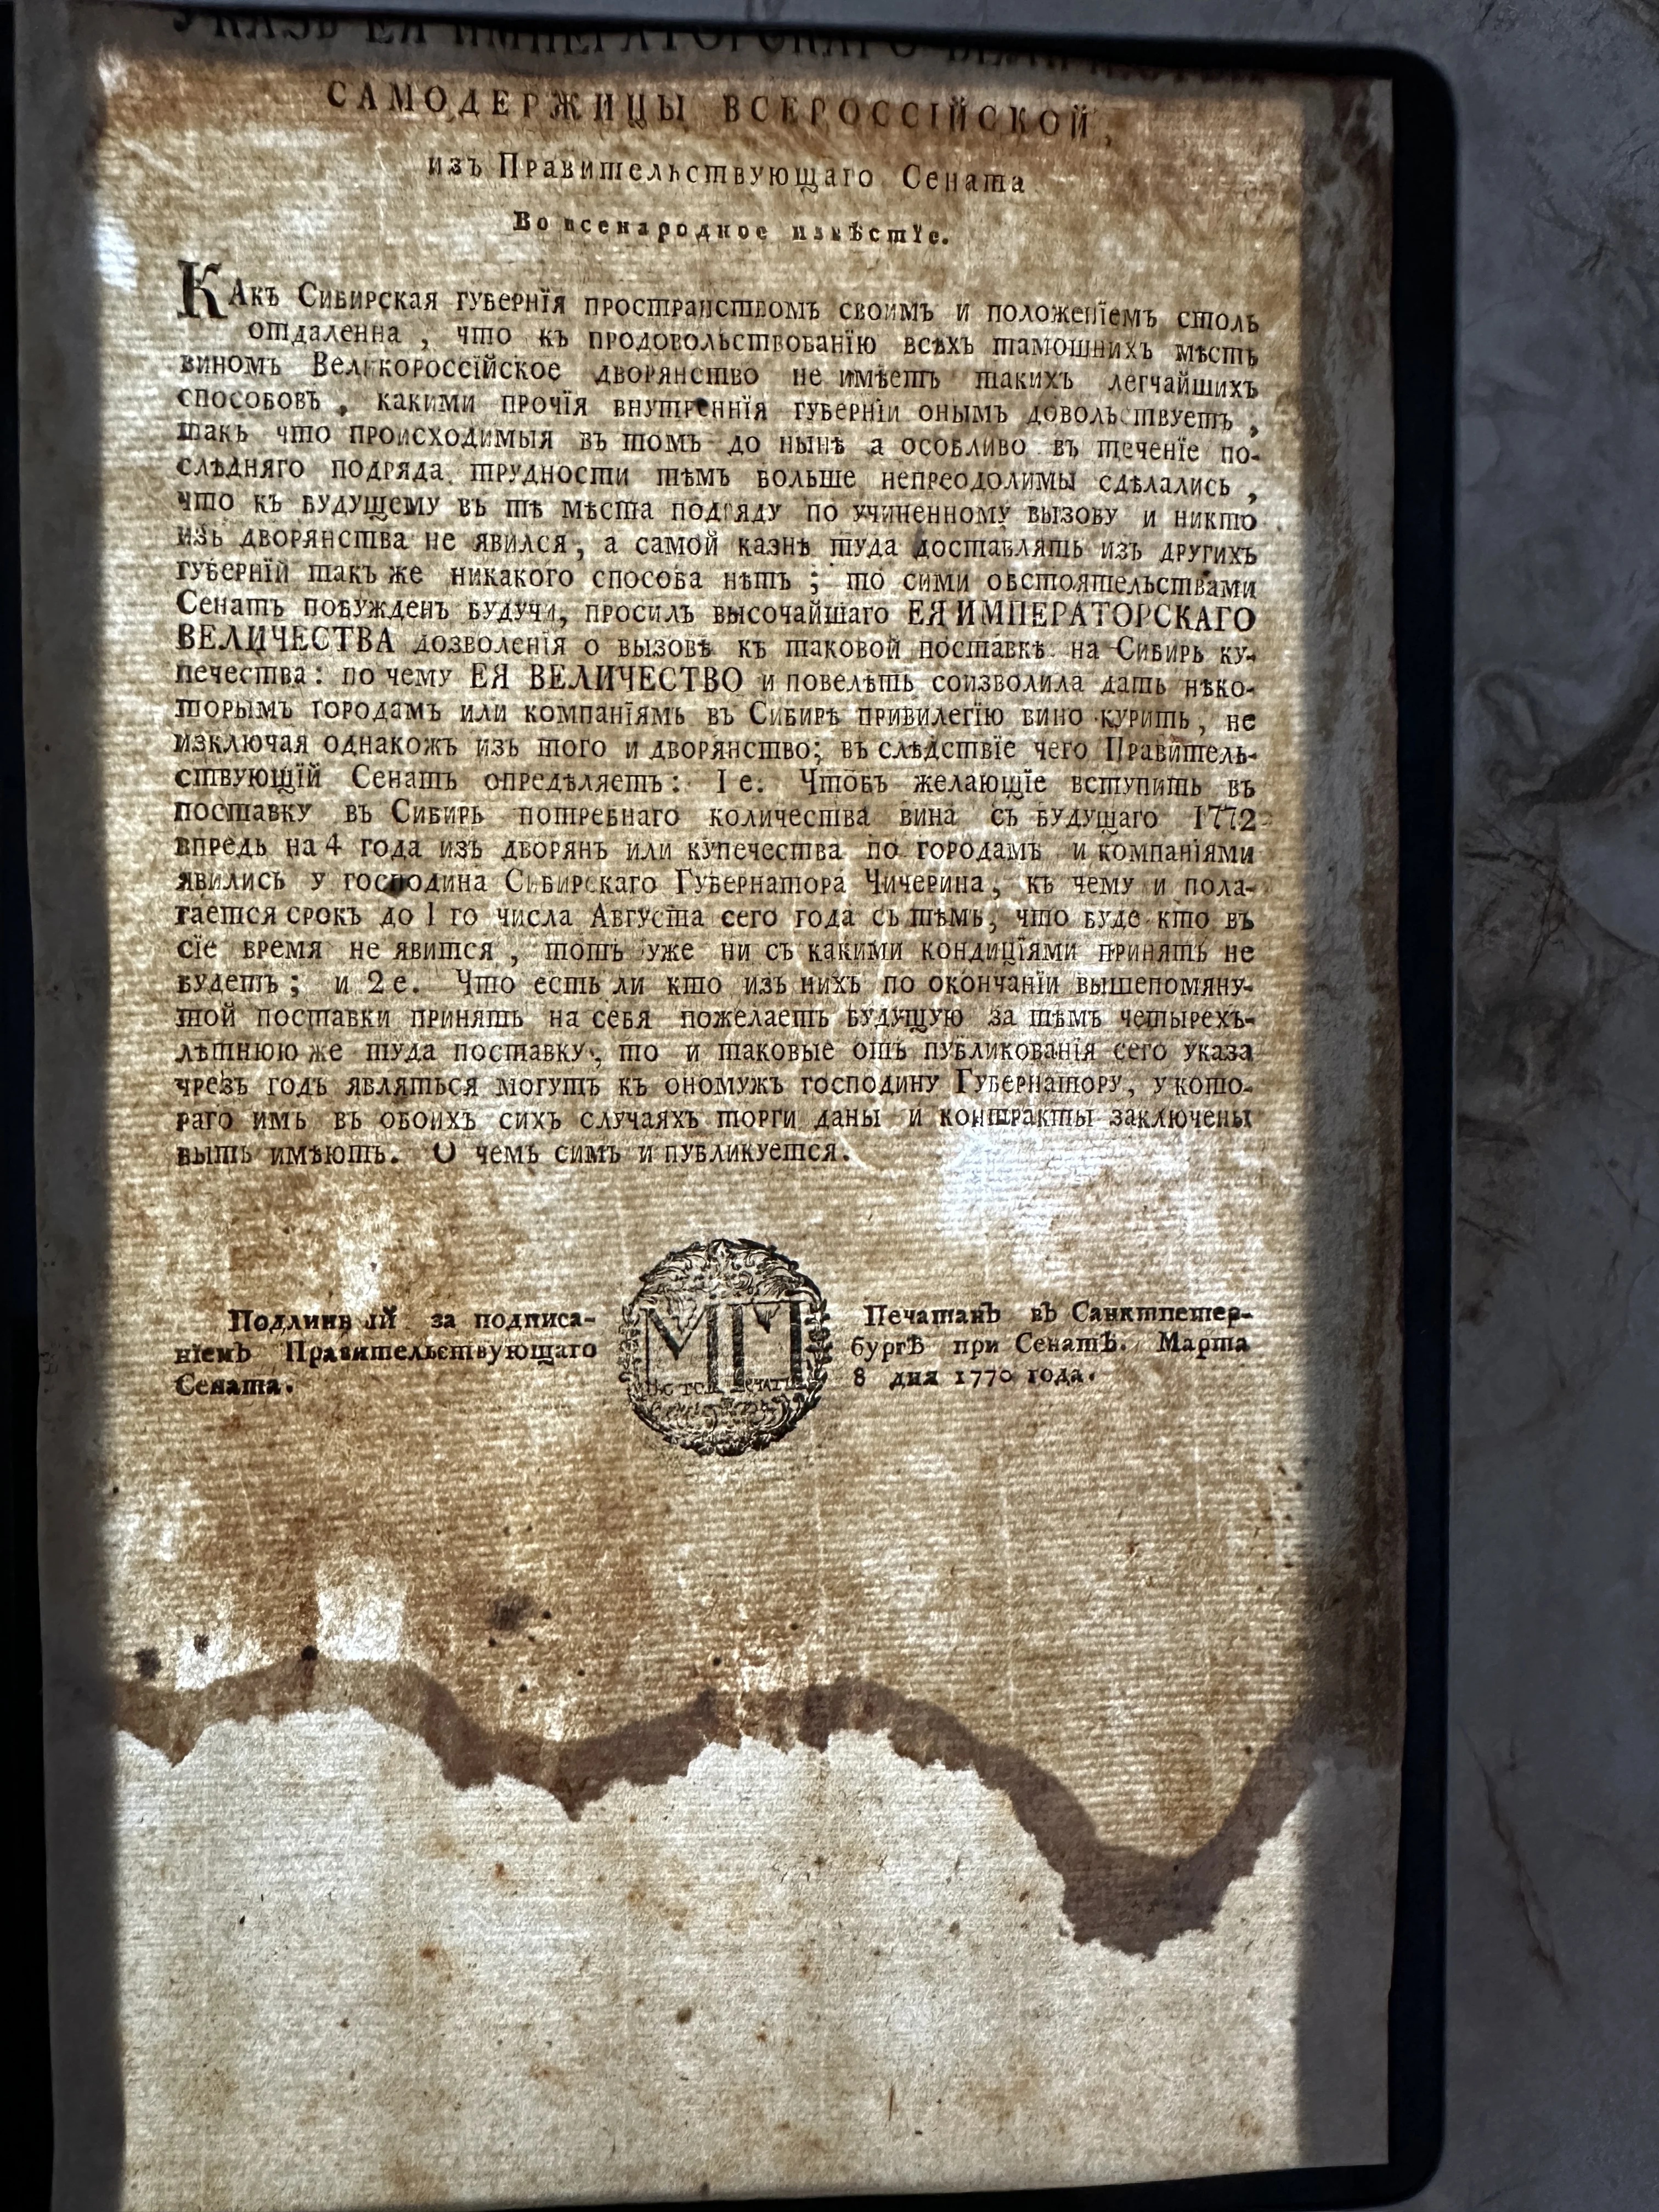 УКАЗЪ ЕЯ ИМПЕРАТОРСКАГО ВЕЛИЧЕСТВА
САМОДЕРЖИЦЫ ВСЕРОССІЙСКОЙ,
изъ Правительствующаго Сената
Во всенародное извѣстїе.
КАкъ Сибирская губернїя пространствомъ своимъ и положенїемъ столь
отдаленна, что къ продовольствованїю всѣхъ тамошнихъ мѣстъ
виномъ Великороссїйское дворянство не имѣетъ такихъ легчайшихъ
способовъ, какими прочїя внутреннїя губернїи онымъ довольствуетъ,
такъ что происходимыя въ томъ до нынѣ а особливо въ теченїе по-
слѣдняго подряда трудности тѣмъ больше непреодолимы сдѣлались,
что къ будущему въ тѣ мѣста подряду по учиненному вызову и никто
изъ дворянства не явился, а самой казнѣ туда доставлять изъ другихъ
губернїй такъ же никакого способа нѣтъ; то сими обстоятельствами
Сенатъ побужденъ будучи, просилъ высочайшаго ЕЯ ИМПЕРАТОРСКАГО
ВЕЛИЧЕСТВА дозволенїя о вызовѣ къ таковой поставкѣ на Сибирь ку-
печества: по чему ЕЯ ВЕЛИЧЕСТВО и повелѣть соизволила дать нѣко-
торымъ городамъ или компанїямъ въ Сибирѣ привилегїю вино курить, не
изключая однакожъ изъ того и дворянство; въ слѣдствїе чего Правитель-
ствующїй Сенатъ опредѣляетъ: 1 е. Чтобъ желающїе вступить въ
поставку въ Сибирь потребнаго количества вина съ будущаго 1772
впредь на 4 года изъ дворянъ или купечества по городамъ и компанїями
явились у господина Сибирскаго Губернатора Чичерина, къ чему и пола-
гается срокъ до 1 го числа Августа сего года съ тѣмъ, что буде кто въ
сїе время не явится, тотъ уже ни съ какими кондицїями принятъ не
будетъ; и 2 е. Что есть ли кто изъ нихъ по окончанїи вышепомяну-
той поставки принять на себя пожелаетъ будущую за тѣмъ четырехъ-
лѣтнюю же туда поставку, то и таковые отъ публикованїя сего указа
чрезъ годъ являться могутъ къ ономужъ господину Губернатору, у кото-
раго имъ въ обоихъ сихъ случаяхъ торги даны и контракты заключены
быть имѣютъ. О чемъ симъ и публикуется.
Подлинный за подписа-
нїемъ Правительствующаго
Сената.
МП
Печатанъ въ Санктпетер-
бургѣ при Сенатѣ. Марта
8 дня 1770 года.